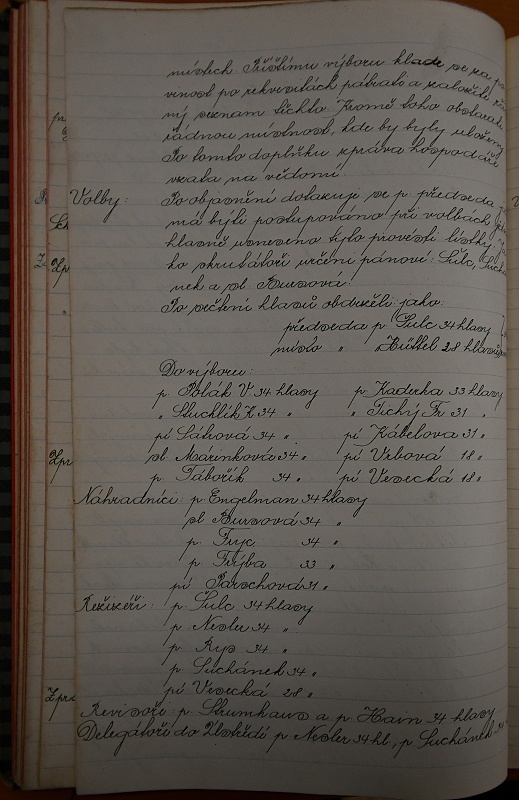 místech. Příštímu výboru klade se za po
vinost po rekvisitách pátrati a založiti řád
ný seznam těchto. Kromě toho obstarati
řádnou místnost, kde by byly uloženy.
Po tomto doplňku zpráva hospodáře
vzata na vědomí.
Volby: Po objasnění dotazuje se p. předseda
má býti postupováno při volbách
hlasně usneseno tyto provésti lístky
ko skrutátoři určení pánové: Šulc, Suchá
nek a sl. Burzová.
Po sečtení hlasů obdrželi: jako:
předseda p. Šulc 34 hlasy
místo " Hüttel 28 hlasů
Do výboru:
p. Polák V. 34 hlasy p. Kaderka 33 hlasy
" Stuchlík K. 34 " " Tichý Fr. 31 "
pí Sáhová 34 " pí Kábelova 31 "
sl. Mařinková 34 " pí Vrbová 18 "
p. Tábořík 34 " pí Vesecká 18 "
Náhradníci: p. Engelman 34 hlasy
sl. Burzová 34 "
p. Fryc 34 "
p. Frýba 33 "
pí Parschová 31 "
Režiséři: p. Šulc 34 hlasy
p. Nesler 34 "
p. Rys 34 "
p. Suchánek 34 "
pí Vesecká 28 "
Revisoři: p. Strumhaus a p. Hain 34 hlasy
Delegátoři do Ústředí p. Nesler 34 hl., p. Suchánek